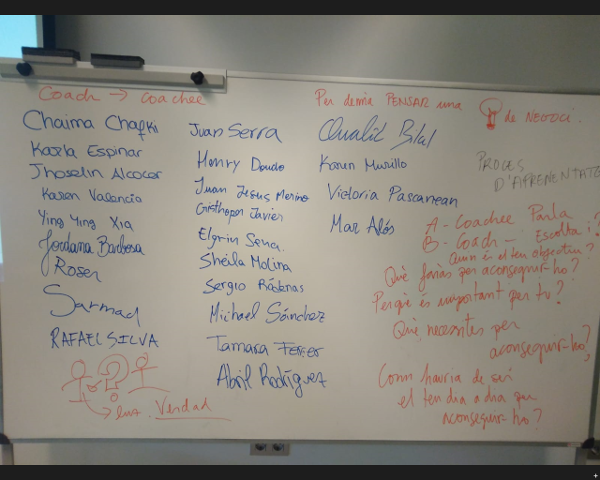 Coach → coachee
Chaima Chafki
Karla Espinar
Jhoselin Alcocer
Karen Valencia
Ying Ying Xia
Jordana Barbosa
Roser
Sarmad
RAFAEL SILVA
Verdad
Juan Serra
Henry Doudo
Juan Jesus Merino
Cristhoper Javier
Elgrin Sena
Sheila Molina
Sergio Ródenas
Michael Sánchez
Tamara Ferrer
Abril Rodríguez
Oualid Bilal
Karen Murillo
Victoria Pascanean
Mar Alós
Per demà PENSAR una
de NEGOCI.
PROCES
D'APRENENTATGE
A - Coachee Parla
B - Coach - Escolta i ?
Quin és el teu objectiu?
Què faràs per aconseguir-ho?
Perquè és important per tu?
Què necessites per
aconseguir-ho?
Com hauria de ser
el teu dia a dia per
aconseguir-ho?